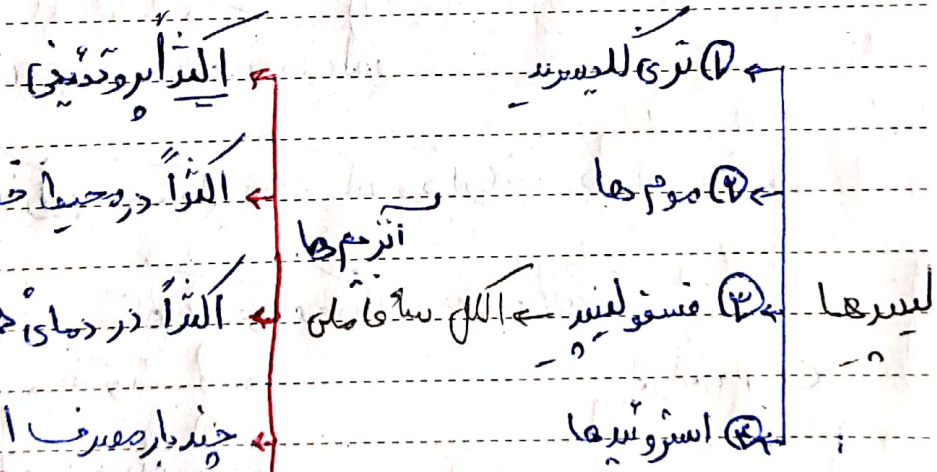 لیپیدها
← ① تری گلیسرید
← ② موم ها
← ③ فسفولیپید ← الکل سه عاملی
← ④ استروئیدها
آنزیم ها
← اکثراً پروتئینی
← اکثراً در محیط
← اکثراً در دمای
← چند بار مصرف